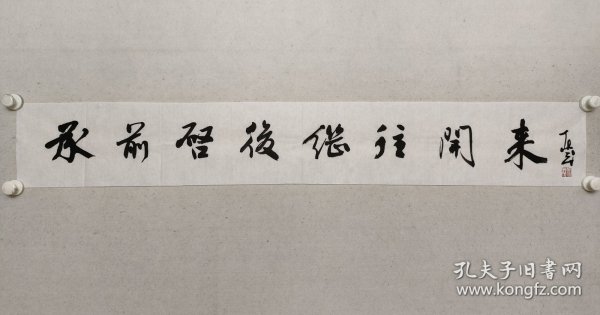 承前啓後繼往開来
孔夫子旧书网
www.kongfz.com